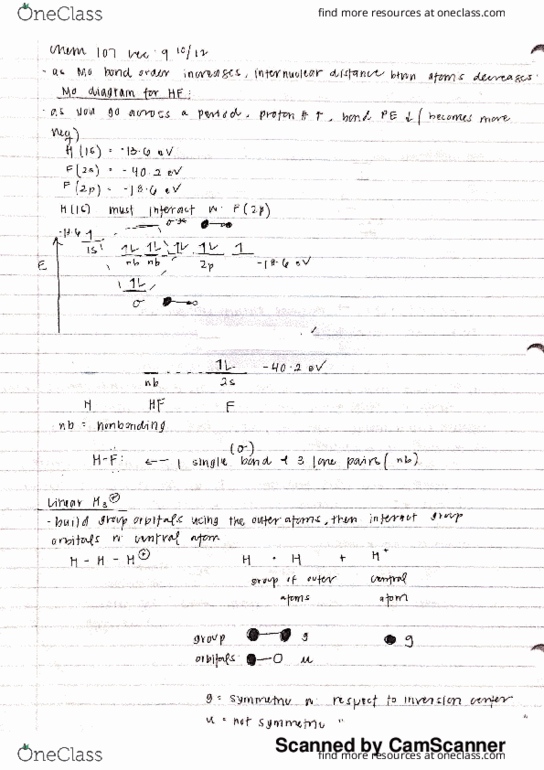 OneClass find more resources at oneclass.com
Chem 107 Lec. 9 10/12
- as MO bond order increases, internuclear distance btwn atoms decreases.
MO diagram for HF:
- as you go across a period, proton # ↑, bond PE ↓ (becomes more
neg)
H (1s) = -13.6 eV
F (2s) = -40.2 eV
F (2p) = -18.6 eV
H(1s) must interact w. F(2p)
σ*
-13.6 1
1s
E
1L 1L 1L 1L 1
nb nb 2p -18.6 eV
1L
σ
1L -40.2 eV
nb 2s
H HF F
nb = nonbonding
(σ)
H-F: ← 1 single bond + 3 lone pairs (nb)
Linear H3⊕
- build group orbitals using the outer atoms, then interact group
orbitals w central atom
H - H - H⊕ H · H + H+
group of outer central
atoms atom
group g g
orbitals: u
g = symmetric w. respect to inversion center
u = not symmetric " "
Scanned by CamScanner
OneClass find more resources at oneclass.com